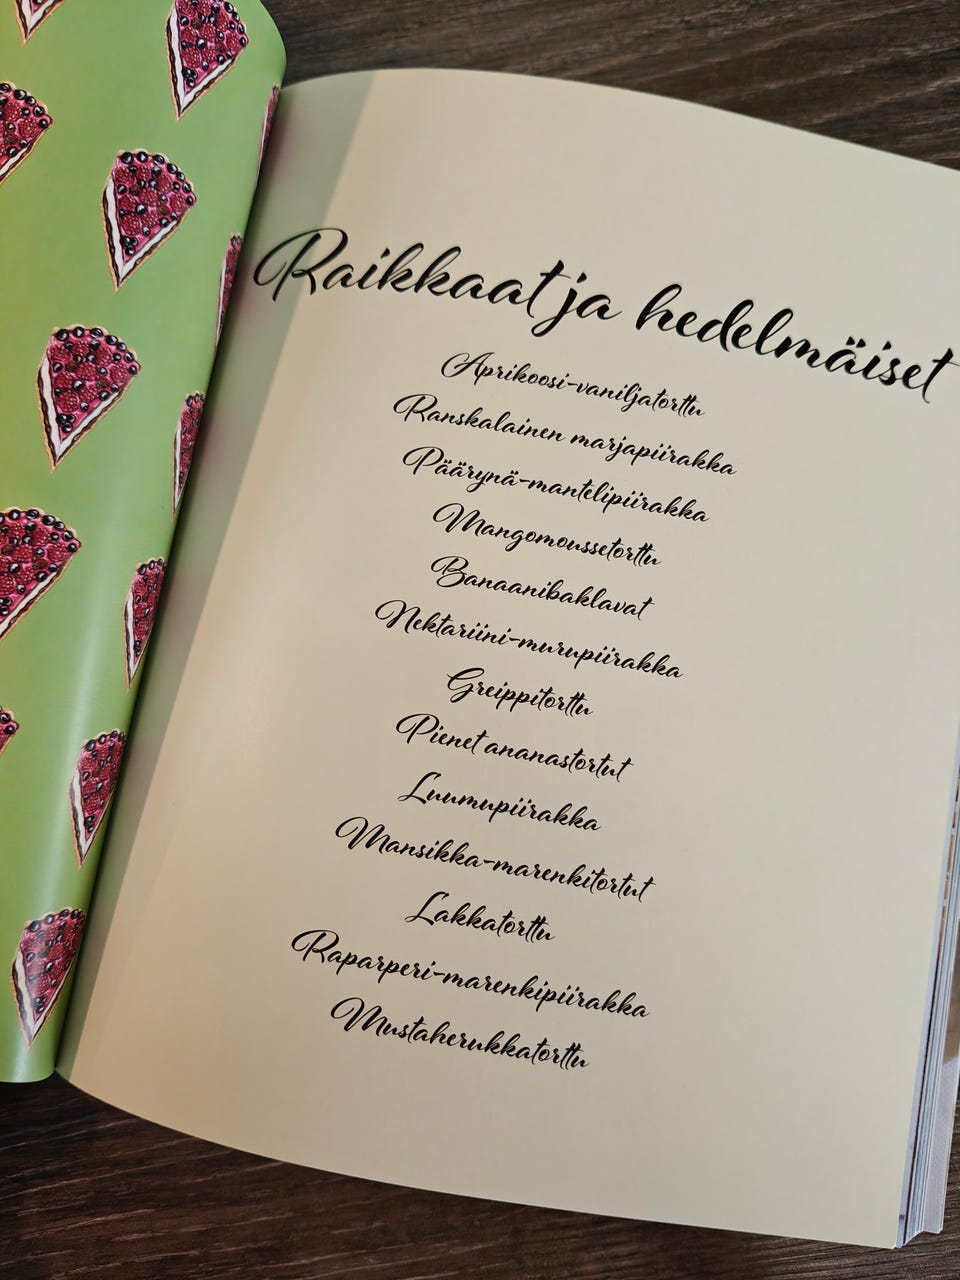 Raikkaat ja hedelmäiset
Aprikoosi-vaniljatorttu
Ranskalainen marjapiirakka
Päärynä-mantelipiirakka
Mangomoussetorttu
Banaanibaklavat
Nektariini-murupiirakka
Greippitorttu
Pienet ananastortut
Luumupiirakka
Mansikka-marenkitortut
Lakkatorttu
Raparperi-marenkipiirakka
Mustaherukkatorttu